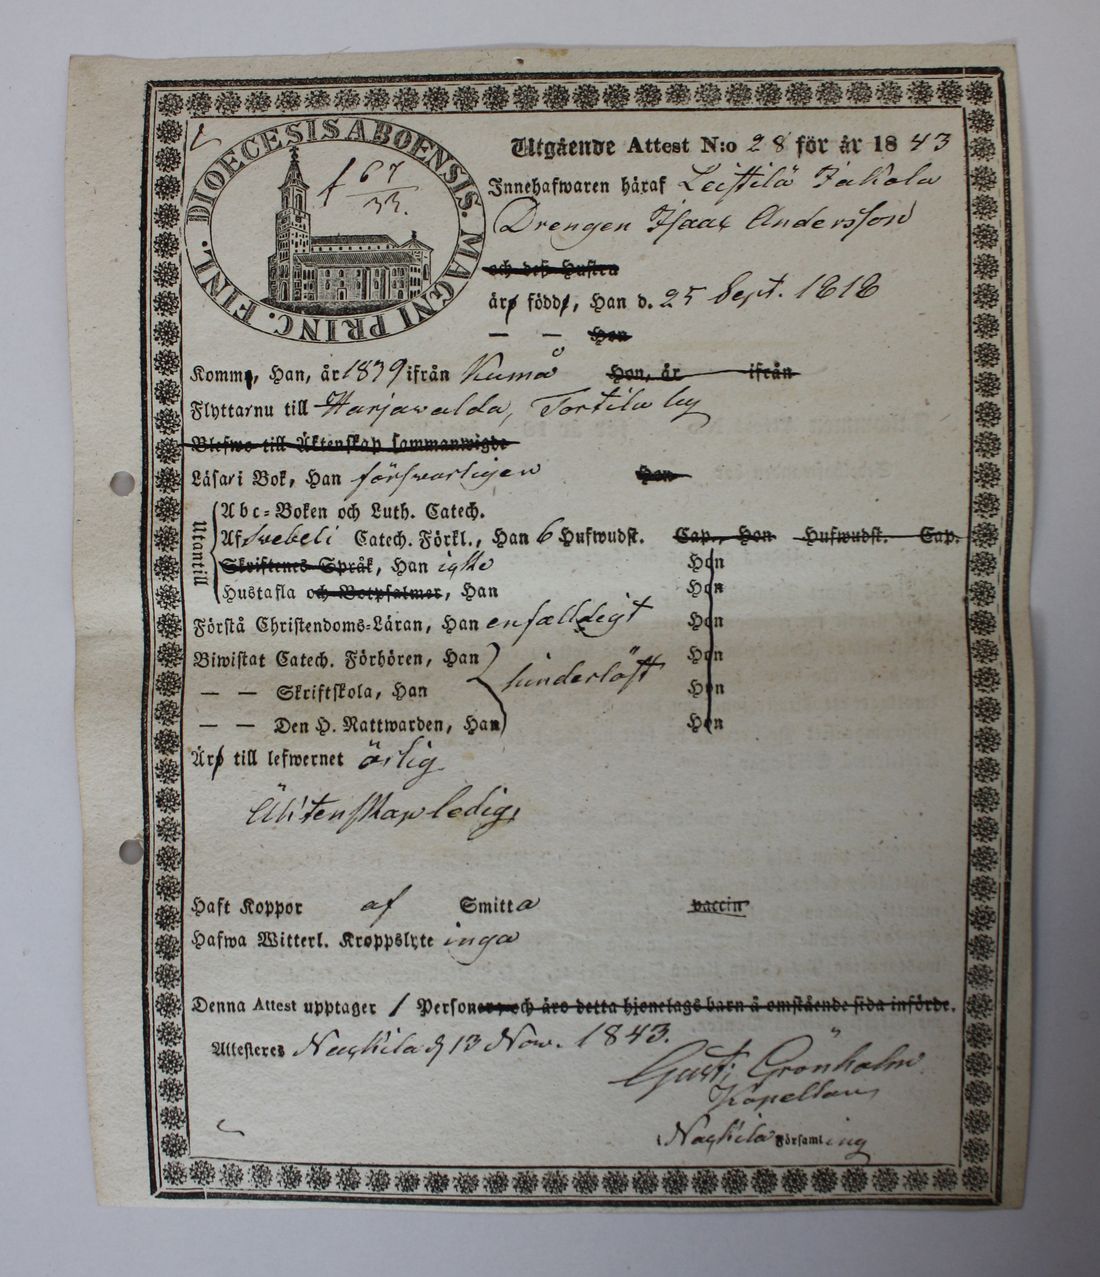 DIOECESIS ABOENSIS. MAGNI PRINC. FINL.
f 67
33.
Utgående Attest N:o 28 för år 1843
Innehafwaren häraf Leistilä Jakola
Drengen Isaac Andersson
och deß Hustru
äro födde, Han d. 25 Sept. 1818
— — Hon
Komme, Han, år 1839 ifrån Kumå Hon, år ifrån
Flyttar nu till Harjawalda, Torttila by
Blefwo till Äktenskap sammanwigde
Läsa i Bok, Han förswarligen Hon
Utantill
Abc-Boken och Luth. Catech.
Af Swebeli Catech. Förkl., Han 6 Hufwudst. Cap., Hon Hufwudst. Cap.
Skriftenes Språk, Han icke Hon
Hustafla och Botpsalmer, Han Hon
Förstå Christendoms-Läran, Han enfalldigt Hon
Biwistat Catech. Förhören, Han Hon
— — Skriftskola, Han hinderlöst Hon
— — Den H. Nattwarden, Han Hon
Äro till lefwernet ärlig
Äktenskapsledig,
Haft Koppor af Smitta vaccin
Hafwa Witterl. Kroppslyte inga
Denna Attest upptager 1 Personer, och äro detta hjonelags barn å omstående sida införde.
Attesteres Nackila d 13 Now. 1843.
Gust: Grönholm
Kapellan
i Nackila Församling